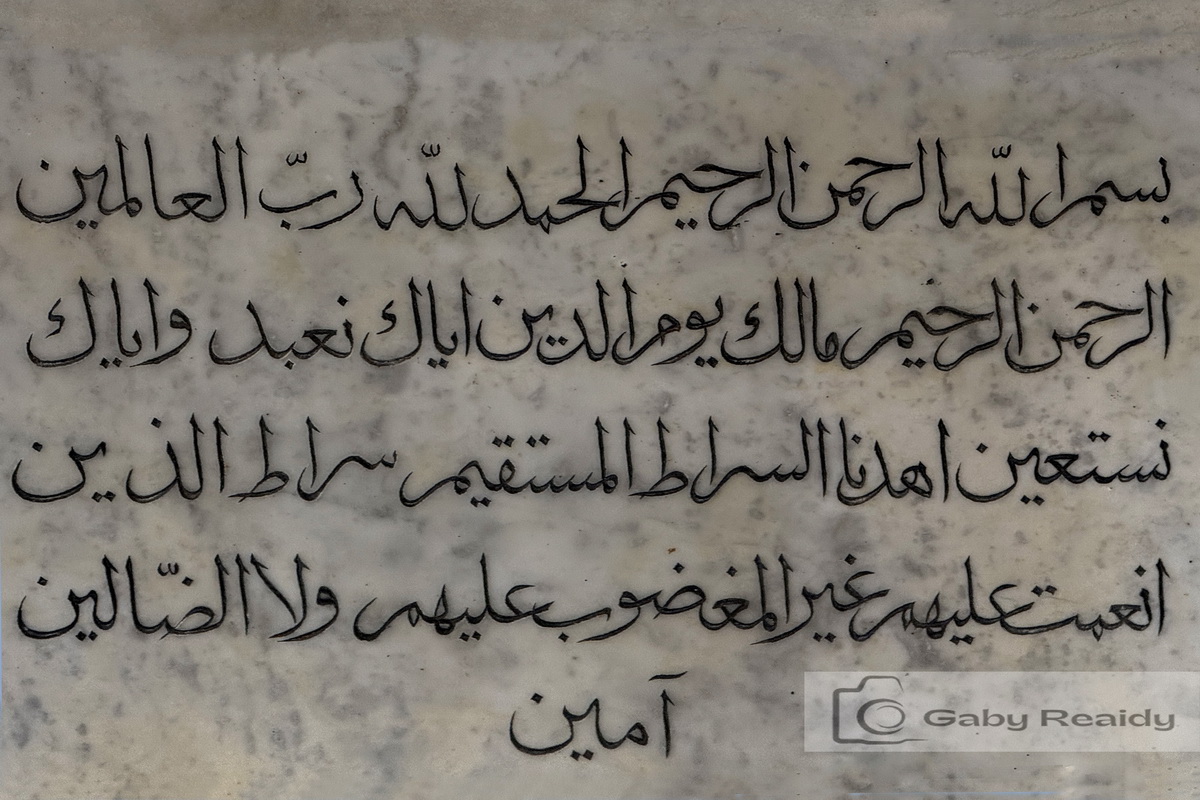 بسم اللّه الرحمن الرحيم الحمد للّه ربّ العالمين
الرحمن الرحيم مالك يوم الدين اياك نعبد واياك
نستعين اهدنا السراط المستقيم سراط الذين
انعمت عليهم غير المغضوب عليهم ولا الضّالين
آمين
Gaby Reaidy